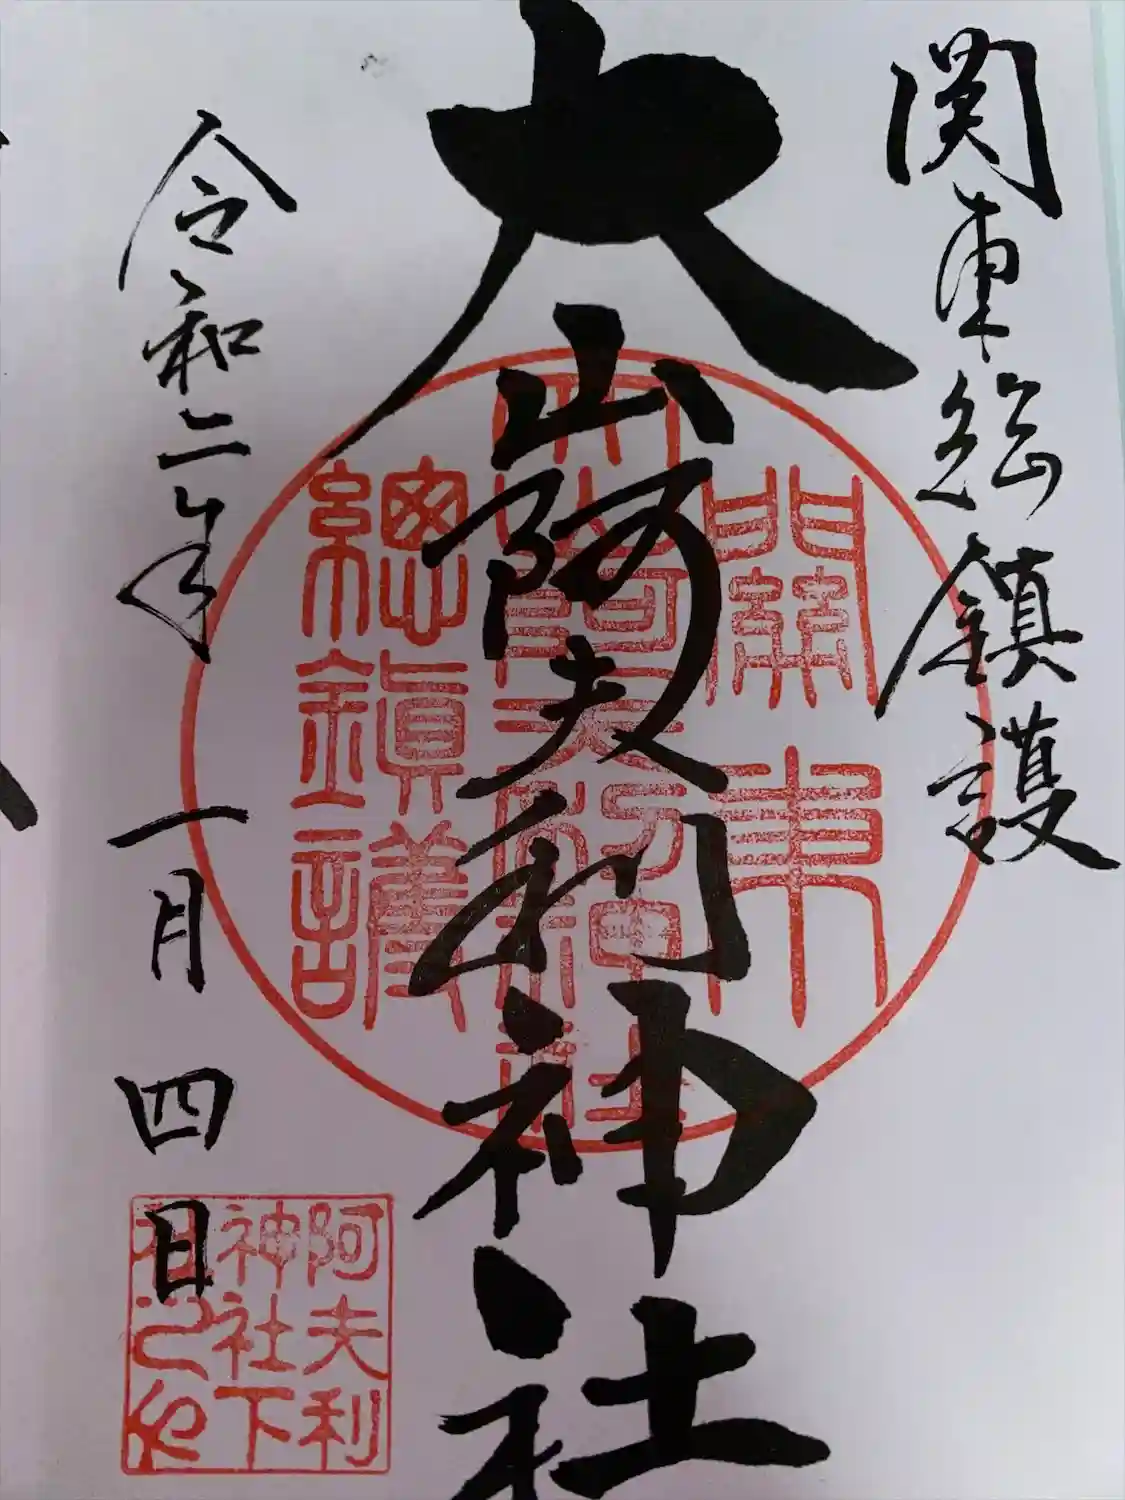 関東総鎮護
大山阿夫利神社
令和二年一月四日
關東
大山阿夫利神社
總鎮護
阿夫利
神社下
社之印